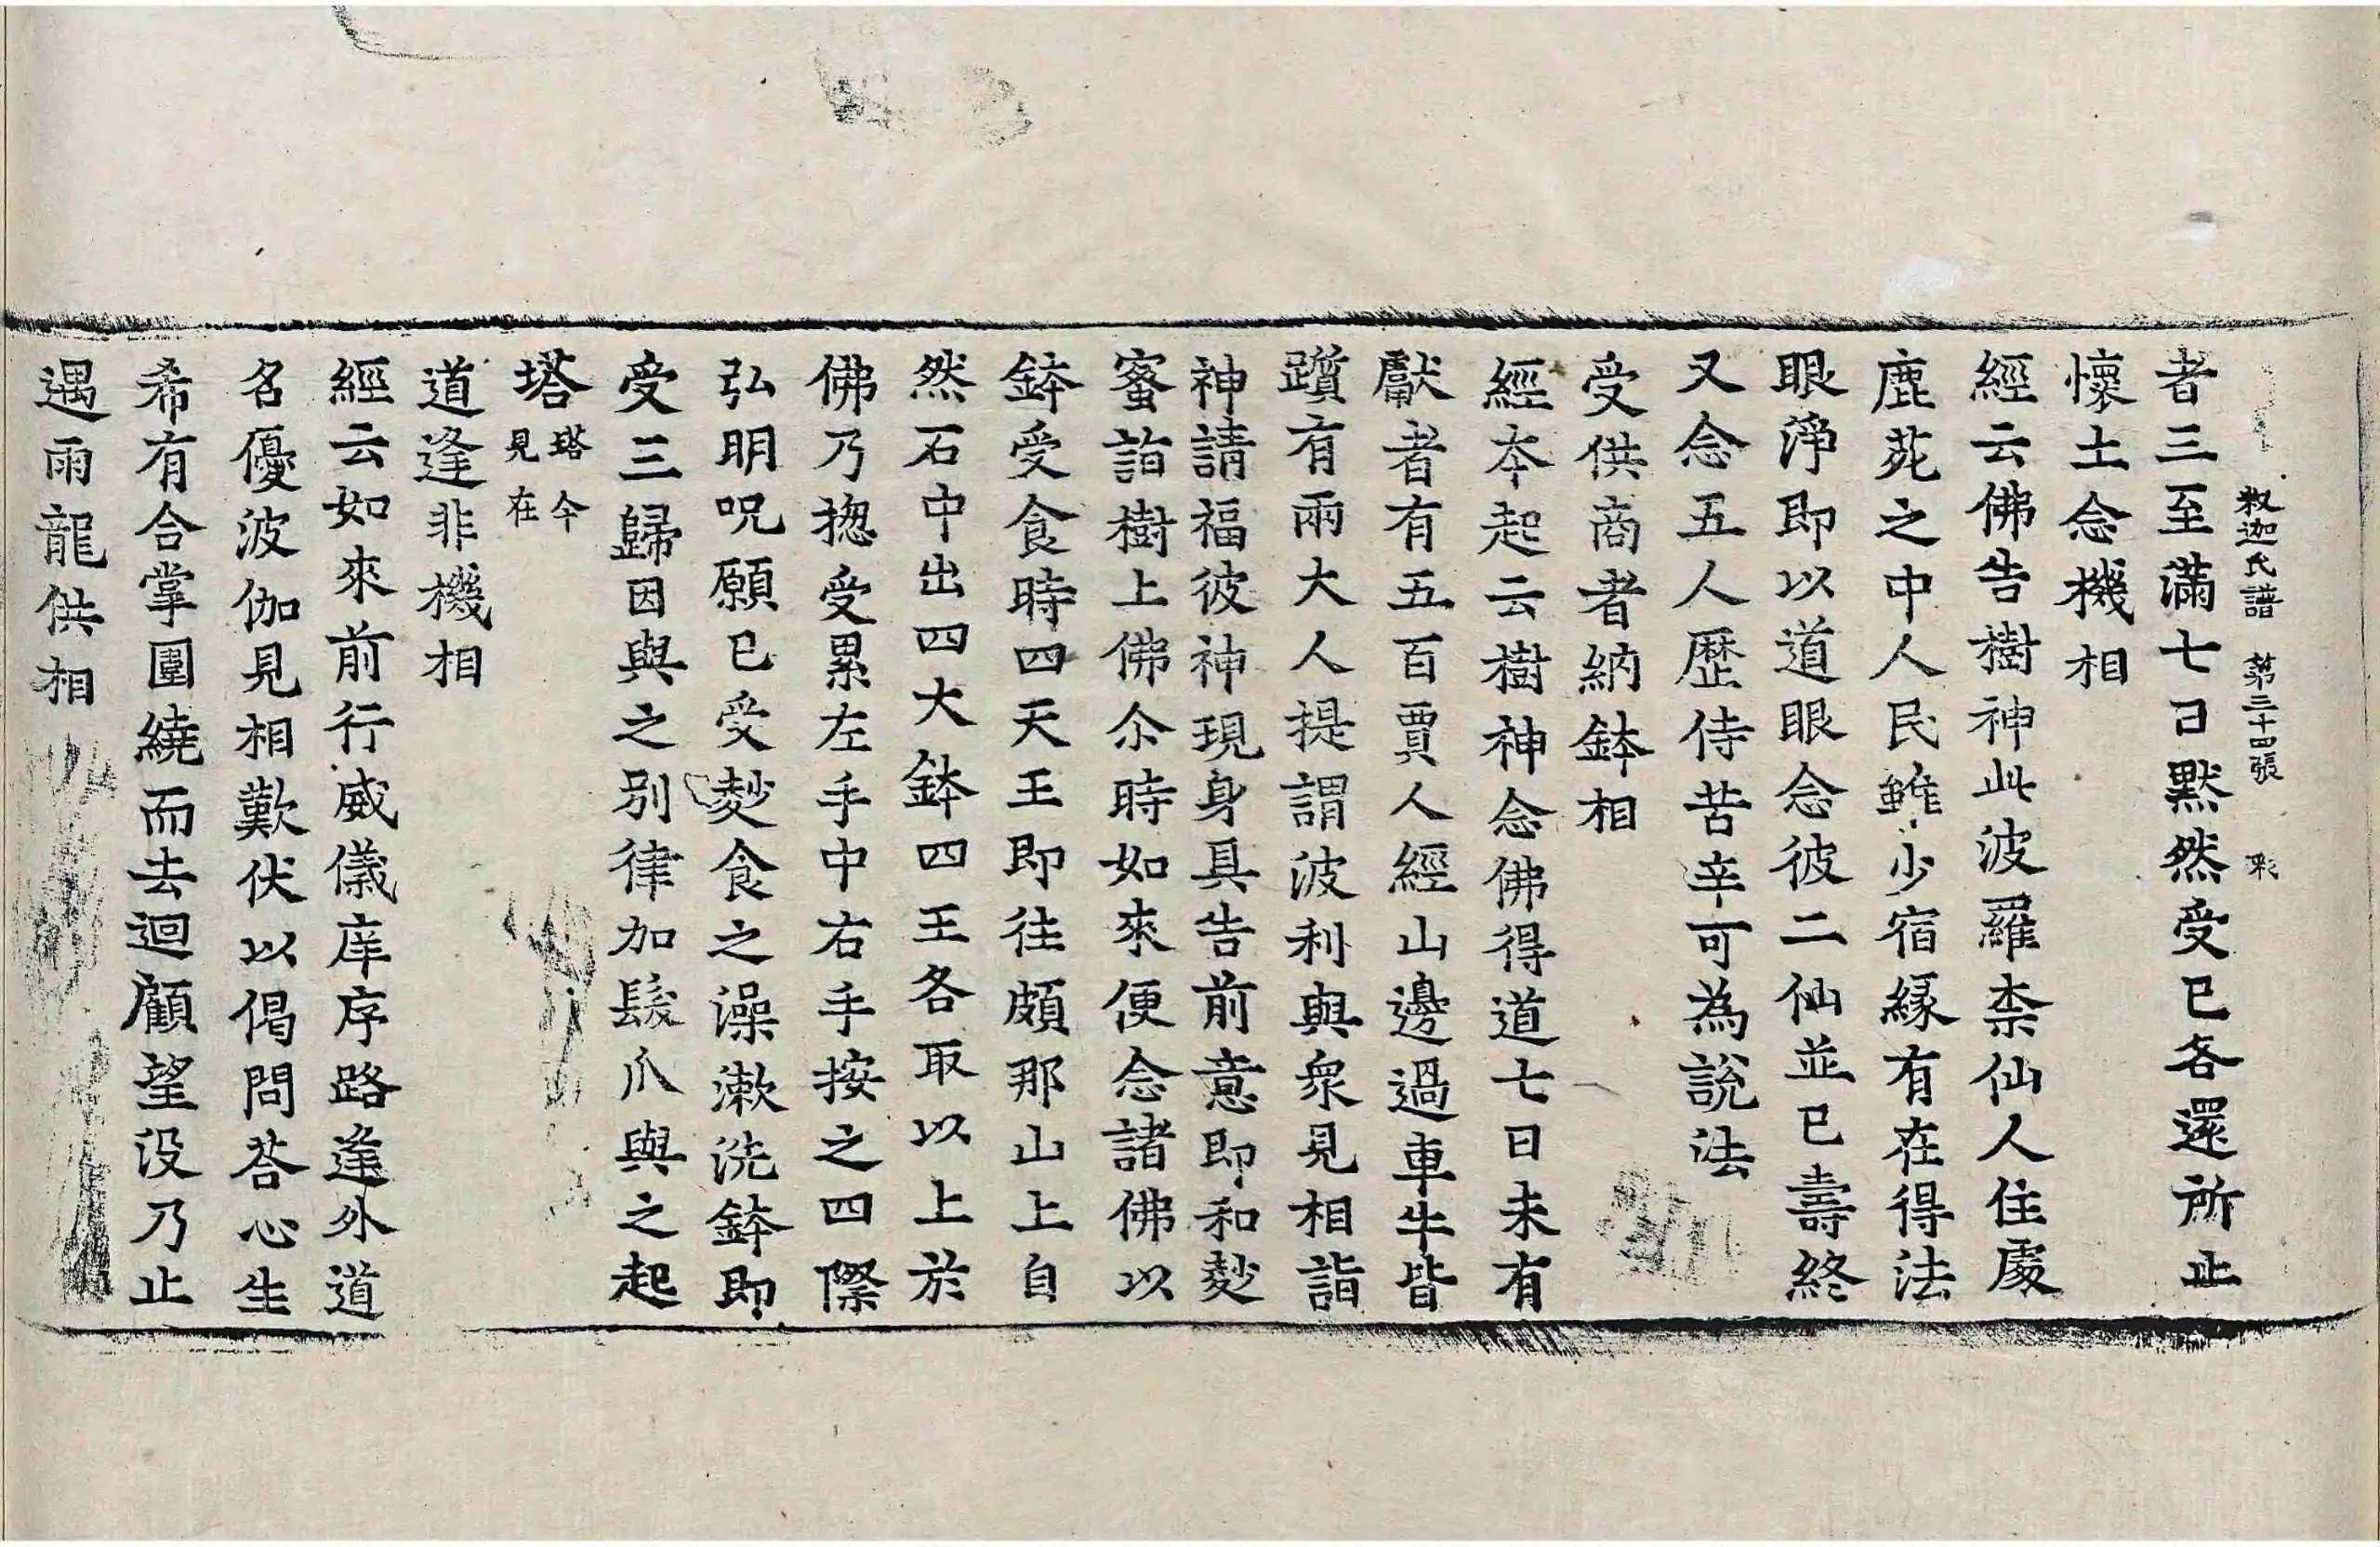 釋迦氏譜　第二十四張
者三至滿七日默然受已各還所止
懷土念機相
經云佛告樹神此波羅柰仙人住處
鹿苑之中人民雖少宿緣有在得法
眼淨即以道眼念彼二仙並已壽終
又念五人歷侍苦辛可為說法
受供商者納鉢相
經本起云樹神念佛得道七日未有
獻者有五百賈人經山邊過車牛皆
躓有兩大人提謂波利與衆見相詣
神請福彼神現身具告前意即和麨
蜜詣樹上佛尒時如來便念諸佛以
鉢受食時四天王即往頗那山上自
然石中出四大鉢四王各取以上於
佛乃揔受累左手中右手按之四際
弘明呪願已受麨食之澡漱洗鉢即
受三歸因與之別律加髮爪與之起
塔塔今見在
道逢非機相
經云如來前行威儀庠序路逢外道
名優波伽見相歎伏以偈問荅心生
希有合掌圍繞而去迴顧望没乃止
遇雨龍供相